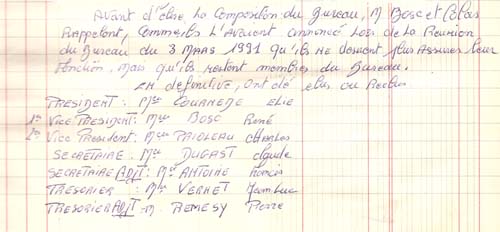 Avant d'élire la Composition du Bureau, M Bosc et
Rappelent, comme ils l'avaient annoncé lors de la Reunion
du Bureau du 3 MARS 1991 qu'ils ne desirent plus Assurer leur
fonction, mais qu'ils restent membres du Bureau.
EN definitive, ont été elus ou Reelus
PRESIDENT : Mr COURNEDE Elie
1er VICE PRESIDENT : Mr BOSC René
2e Vice President : Mr Charles
SECRETAIRE : Mr DUGAST Claude
SECRETAIRE ADJT : Mr ANTOINE Francis
TRESORIER : Mr VERNET Jean Luc
TRESORIER ADJT : M. REMESY Pierre